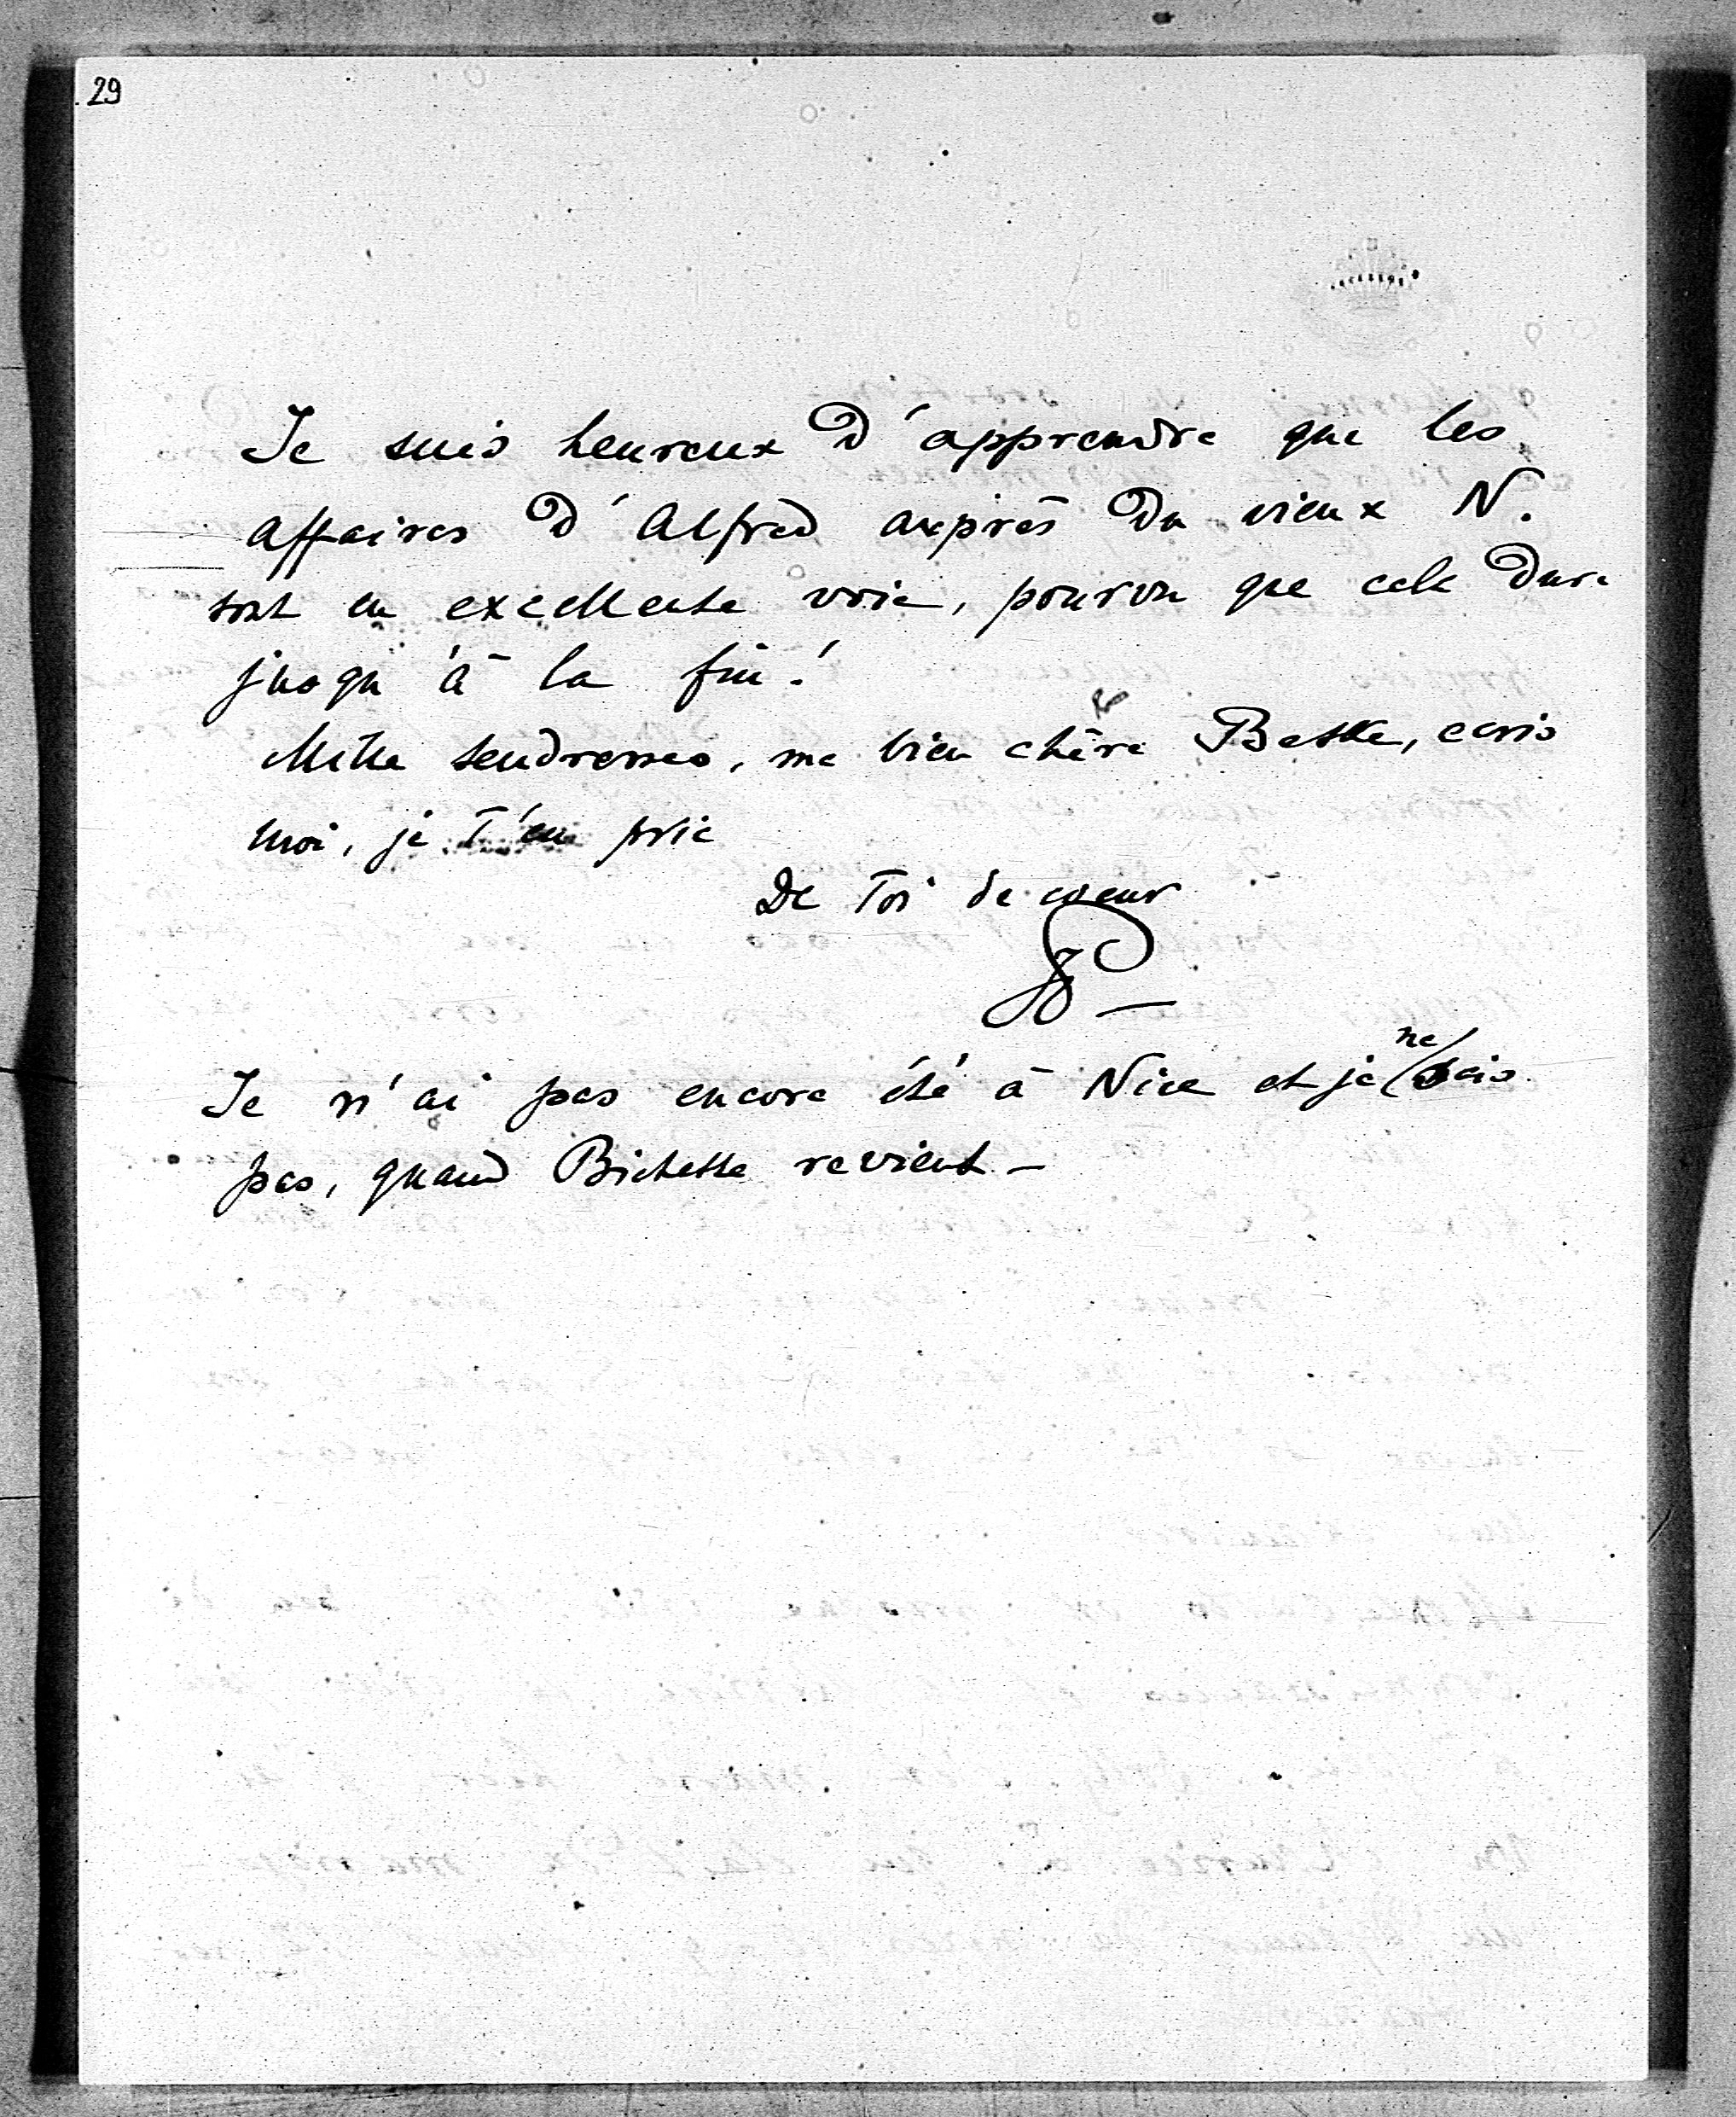 29
Je suis heureux d'apprendre que les
affaires d'Alfred auprès du vieux N.
sont en excellente voie, pourvu que cela dure
jusqu'à la fin!
Mille tendresses, ma bien chère Bette, ecris
moi, je t'en prie
De Toi de coeur
Je n'ai pas encore été à Nice et je ne sais
pas, quand Bichette revient -